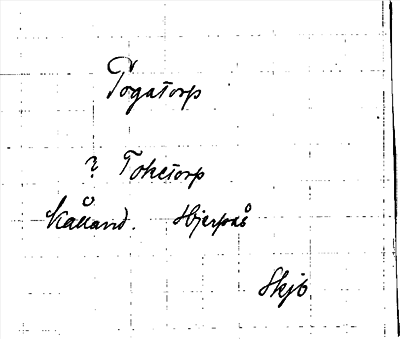 Togatorp
? Toketorp
Kålland. Hjerpås
Skjb